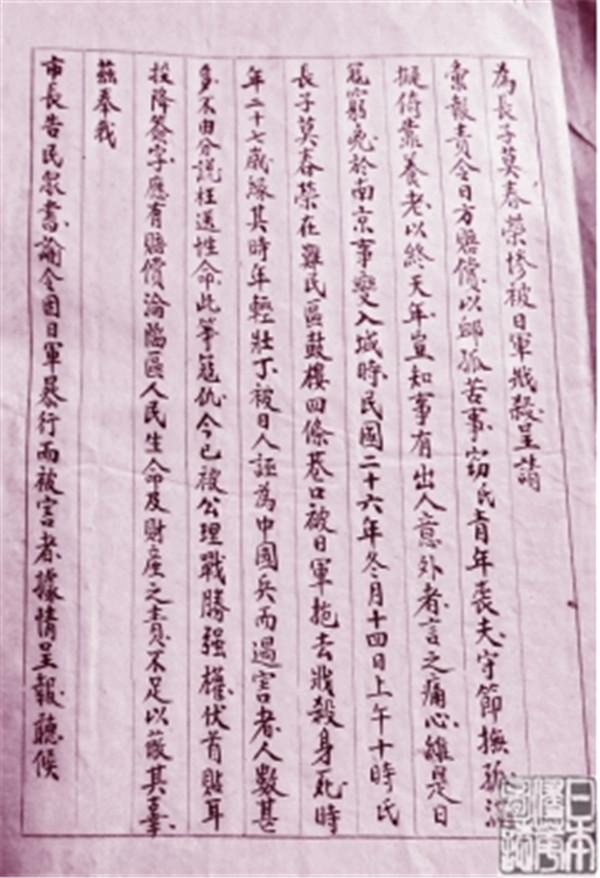 為長子莫春榮慘被日軍戕殺呈請
彙報責令日方賠償以卹孤苦事竊氏青年喪夫守節撫孤
擬倚靠養老以終天年豈知事有出人意外者言之痛心緣是日
寇竄兔於南京事變入城時民國二十六年冬月十四日上午十時氏
長子莫春榮在難民區鼓樓四條巷口被日軍拖去戕殺身死時
年二十七歲緣其時年輕壯丁被日人誣為中國兵而遇害者人數甚
多不由分說枉送性命此等寇仇今已被公理戰勝强權伏首貼耳
投降簽字應有賠償淪陷區人民生命及財產之責不足以蔽其辜
茲奉我
市長告民眾書諭令因日軍暴行而被害者據情呈報聽候